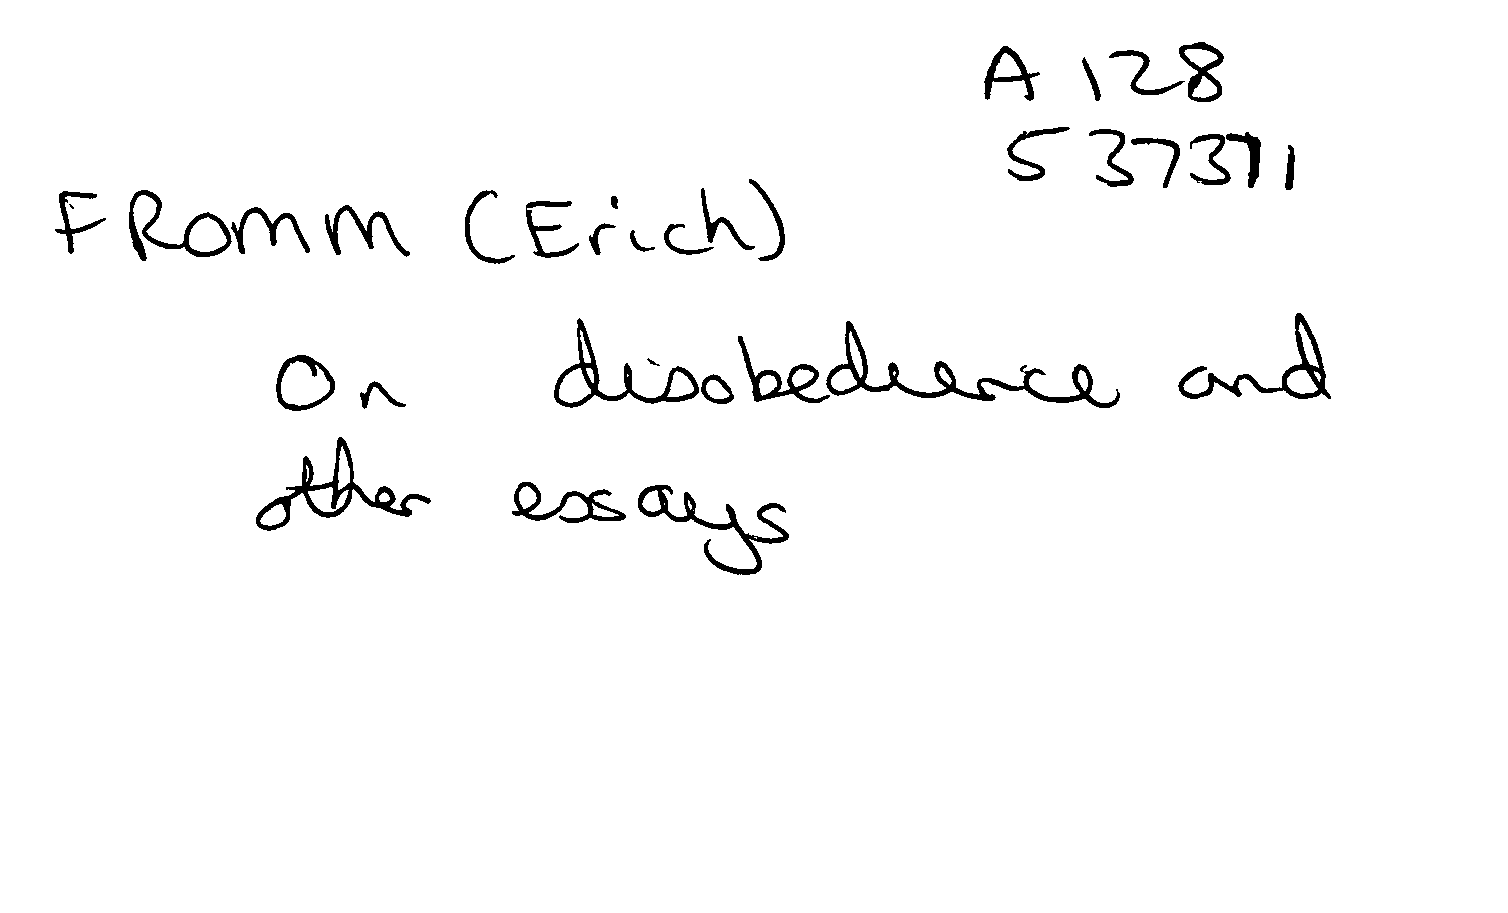 A 128
537371
FROMM (Erich)
On disobedience and
other essays